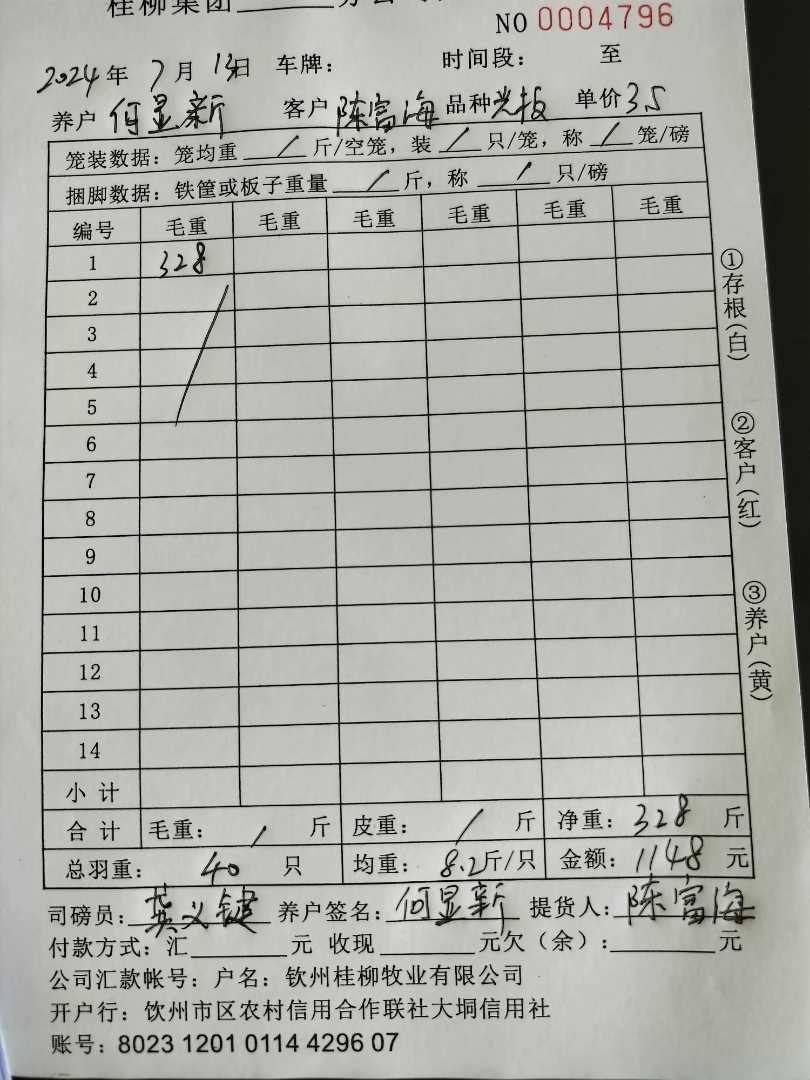 桂柳集团
NO 0004796
2024年 7月 13日 车牌： 时间段： 至
养户 何显新 客户 陈富海 品种 光板 单价 3.5
笼装数据：笼均重 / 斤/空笼，装 / 只/笼，称 / 笼/磅
捆脚数据：铁筐或板子重量 / 斤，称 / 只/磅
编号 毛重 毛重 毛重 毛重 毛重 毛重
1 328
2
3
4
5
6
7
8
9
10
11
12
13
14
小 计
合 计 毛重： / 斤 皮重： / 斤 净重： 328 斤
总羽重： 40 只 均重： 8.2斤/只 金额： 1148 元
司磅员： 义键 养户签名： 何显新 提货人： 陈富海
付款方式：汇 元 收现 元欠（余）： 元
公司汇款帐号：户名：钦州桂柳牧业有限公司
开户行：钦州市区农村信用合作联社大垌信用社
账号：8023 1201 0114 4296 07
①存根(白)
②客户(红)
③养户(黄)